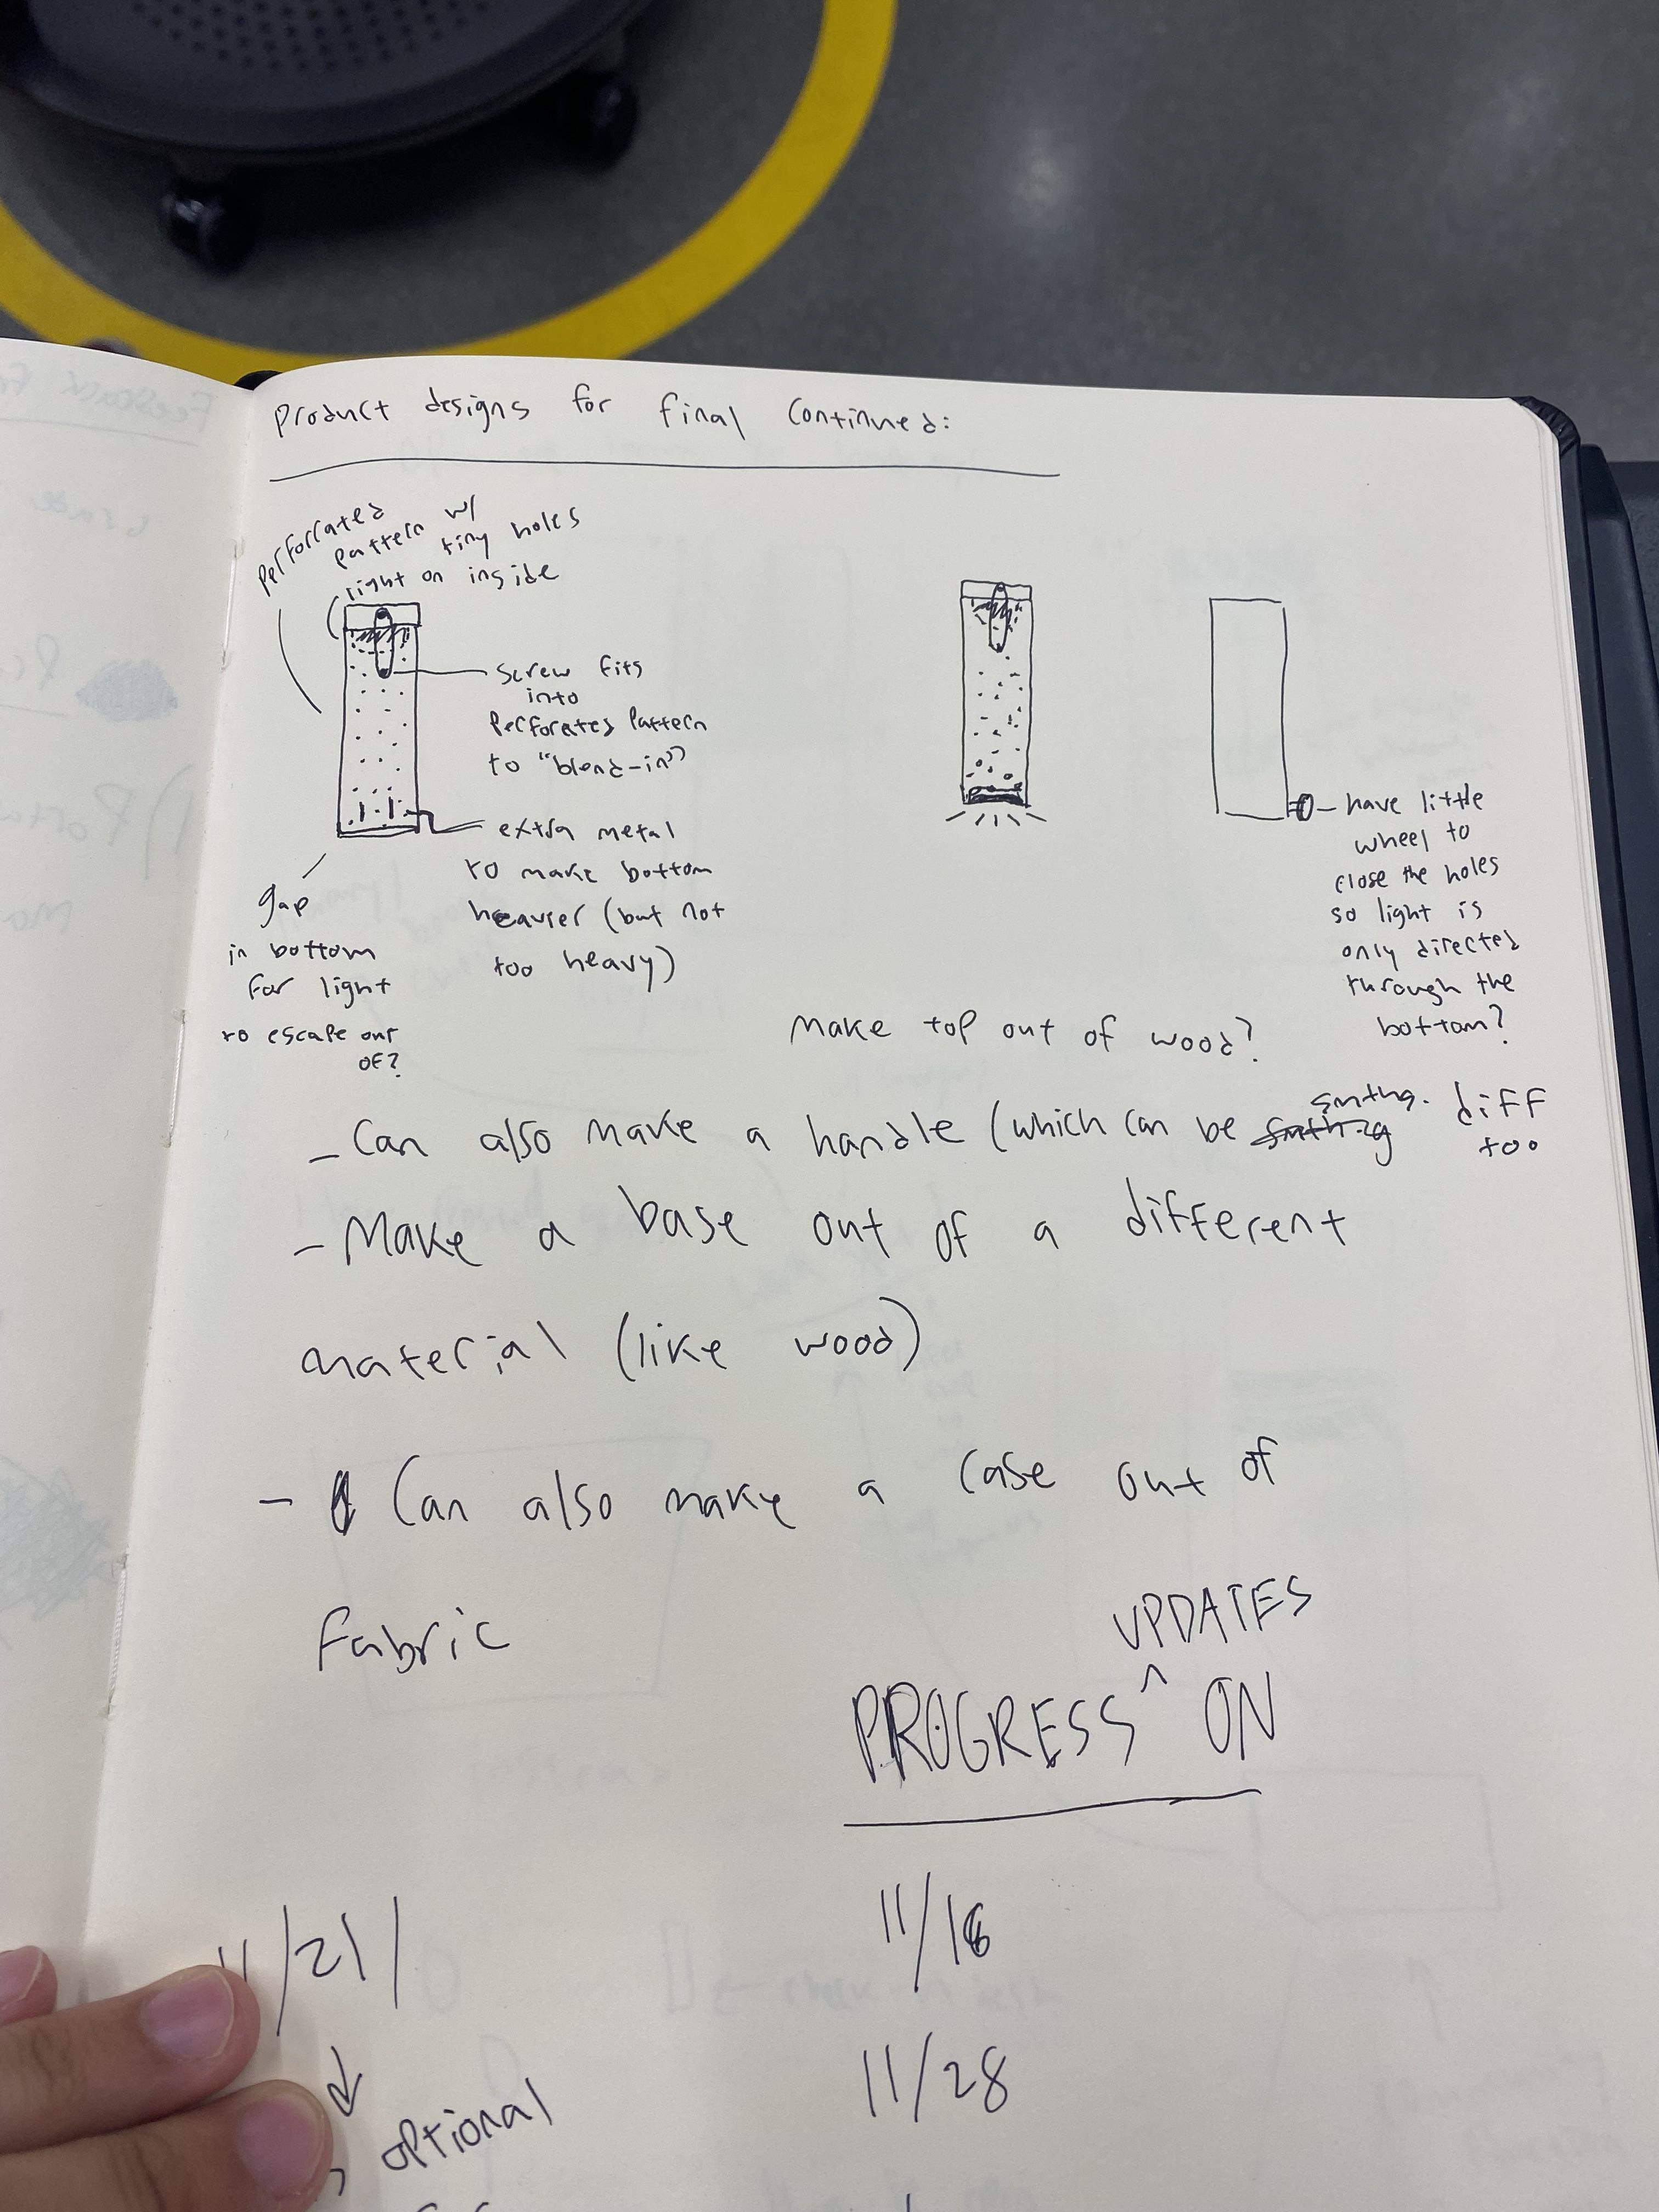 Product designs for final continued:
Perforrated
pattern w/
tiny holes
light on inside
screw fits
into
Perforates Pattern
to "blend-in"
extra metal
to make bottom
heavier (but not
too heavy)
gap
in bottom
for light
to escape out
of?
have little
wheel to
close the holes
so light is
only directed
through the
bottom?
Make top out of wood?
- Can also make a handle (which can be smthg. diff
too
- Make a base out of a different
material (like wood)
- Can also make a case out of
Fabric
UPDATES
PROGRESS ^ ON
11/16
11/21
11/28
optional